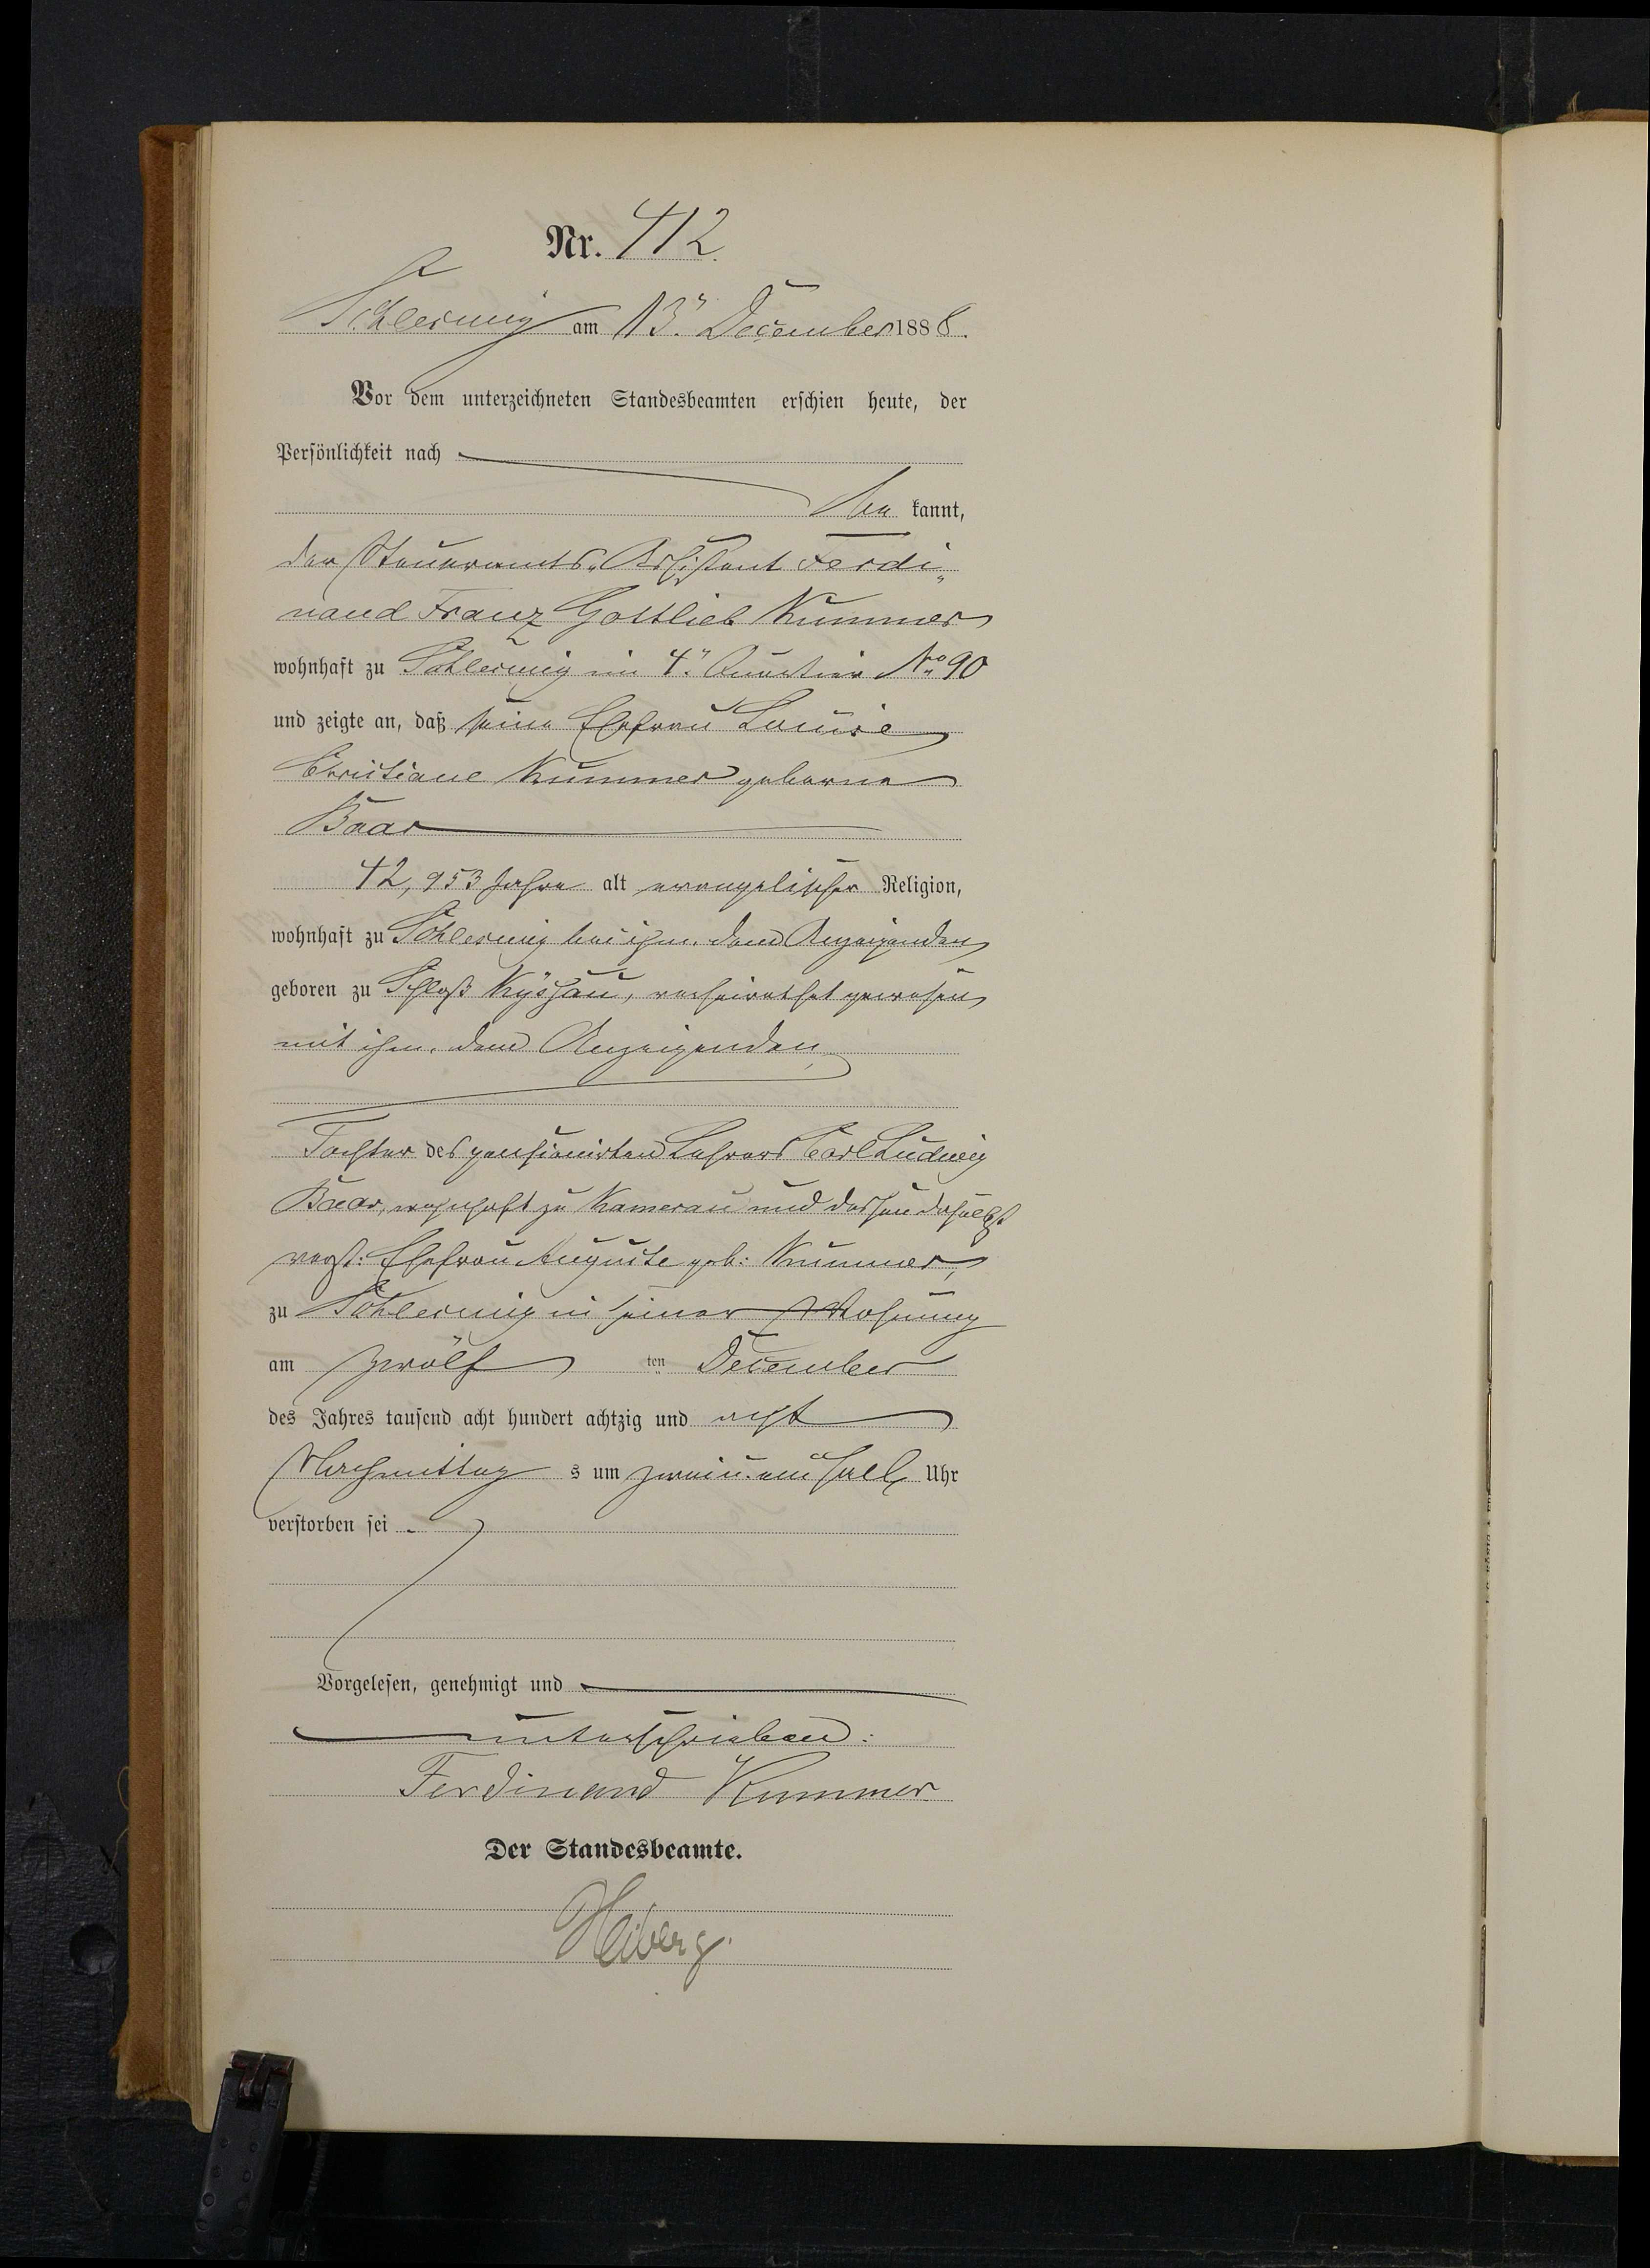 Nr. 412.
Schleswig am 13. December 1888.
Vor dem unterzeichneten Standesbeamten erschien heute, der
Persönlichkeit nach
be kannt,
der Steueramts-Assistent Ferdi-
nand Franz Gottlieb Kummer
wohnhaft zu Schleswig im 4. Quartier No 90
und zeigte an, daß seine Ehefrau Louise
Christiane Kummer geborne
Baar
42,953 Jahre alt evangelischer Religion,
wohnhaft zu Schleswig bei ihm, dem Anzeigenden
geboren zu Schloß Kyschau, verheirathet gewesen
mit ihm, dem Anzeigenden,
Tochter des pensionirten Lehrers Carl Ludwig
Baar, wohnhaft zu Kamerau und dessen daselbst
verst: Ehefrau Auguste geb: Kummer,
zu Schleswig in seiner Wohnung
am zwölf ten December
des Jahres tausend acht hundert achtzig und acht
Nachmittag s um zwei u. ein halb Uhr
verstorben sei.
Vorgelesen, genehmigt und
unterschrieben:
Ferdinand Kummer
Der Standesbeamte.
Heiberg.